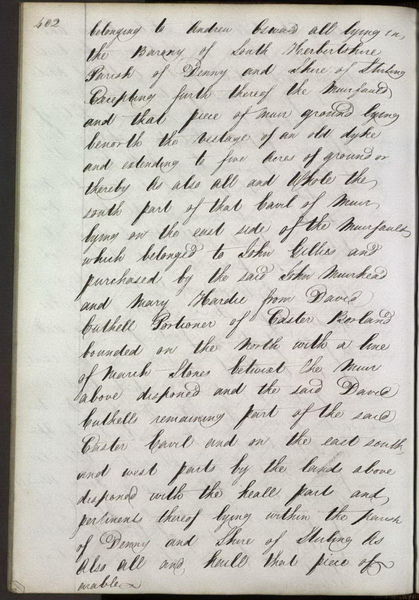 402
belonging to Andrew Oswald all lying in
the Barony of South Herbertshire
Parish of Denny and Shire of Stirling
Excepting furth thereof the Muirfauld
and that piece of muir ground lying
benorth the vestage of an old dyke
and extending to five Acres of ground or
thereby As also all and Whole the
south part of that Cavil of Muir
lying on the east side of the Muirfauld
which belonged to John Gillies and
purchased by the said John Muirhead
and Mary Hardie from David
Cuthell Portioner of Easter Borland
bounded on the North with a line
of March Stones betwixt the Muir
above disponed and the said David
Cuthells remaining part of the said
Easter Cavil and on the east south
and west parts by the lands above
disponed with the heall part and
pertinents thereof lying within the parish
of Denny and Shire of Stirling As
Also all and heall that piece of
arable